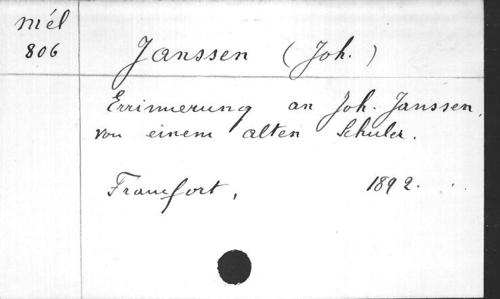 Mél
806
Janssen (Joh.)
Errinnerung an Joh. Janssen,
von einem alten Schuler.
Francfort, 1892.